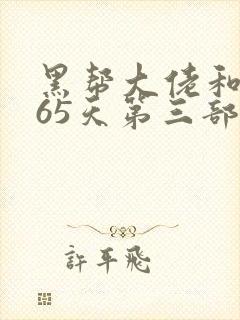 黑帮大佬和
65天第三部
許平飛